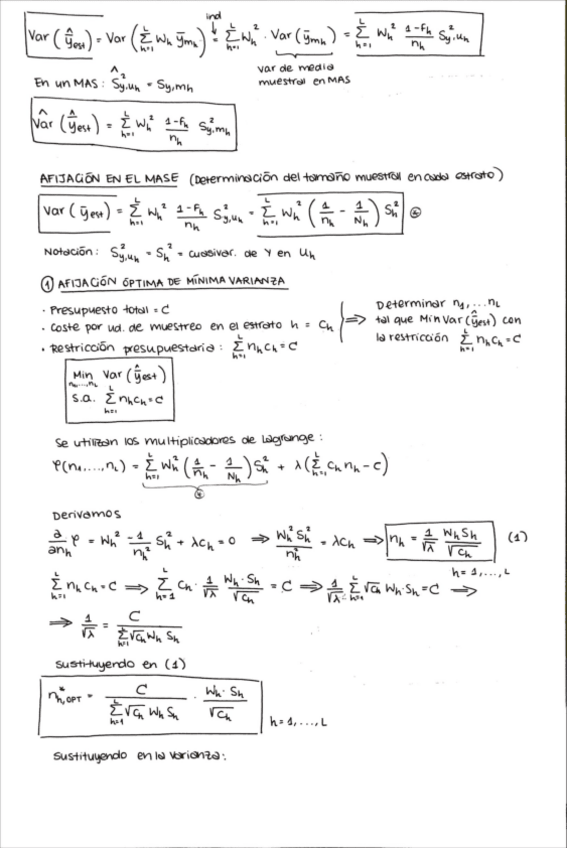 ind
Var(ŷ̄est) = Var(Σ_{h=1}^{L} Wh ȳmh) = Σ_{h=1}^{L} Wh² · Var(ȳmh) = Σ_{h=1}^{L} Wh² (1-fh)/nh S²y,uh
var de media
muestral en MAS
En un MAS: Ŝ²y,uh = Sy,mh
V̂ar(ŷ̄est) = Σ_{h=1}^{L} Wh² (1-fh)/nh S²y,mh
AFIJACIÓN EN EL MASE (Determinación del tamaño muestral en cada estrato)
Var(ȳest) = Σ_{h=1}^{L} Wh² (1-fh)/nh S²y,uh = Σ_{h=1}^{L} Wh² (1/nh - 1/Nh) Sh²
Notación: S²y,uh = Sh² = cuasivar. de Y en Uh
① AFIJACIÓN ÓPTIMA DE MÍNIMA VARIANZA
· Presupuesto total = C
· Coste por ud. de muestreo en el estrato h = Ch
· Restricción presupuestaria: Σ_{h=1}^{L} nh Ch = C
⟹ Determinar n1, ... nL
tal que Min Var(ŷ̄est) con
la restricción Σ_{h=1}^{L} nh Ch = C
Min Var(ŷ̄est)
n1,...,nL
s.a. Σ_{h=1}^{L} nh Ch = C
Se utilizan los multiplicadores de Lagrange:
φ(n1, ..., nL) = Σ_{h=1}^{L} Wh² (1/nh - 1/Nh) Sh² + λ(Σ_{h=1}^{L} Ch nh - C)
Derivamos
∂/∂nh φ = Wh² -1/nh² Sh² + λCh = 0 ⟹ Wh² Sh²/nh² = λCh ⟹ nh = 1/√λ Wh Sh/√Ch (1)
h = 1, ..., L
Σ_{h=1}^{L} nh Ch = C ⟹ Σ_{h=1}^{L} Ch · 1/√λ Wh · Sh/√Ch = C ⟹ 1/√λ Σ_{h=1}^{L} √Ch Wh · Sh = C ⟹
⟹ 1/√λ = C/(Σ_{h=1}^{L} √Ch Wh Sh)
Sustituyendo en (1)
n*h,OPT = C/(Σ_{h=1}^{L} √Ch Wh Sh) · Wh · Sh/√Ch h = 1, ..., L
Sustituyendo en la varianza: